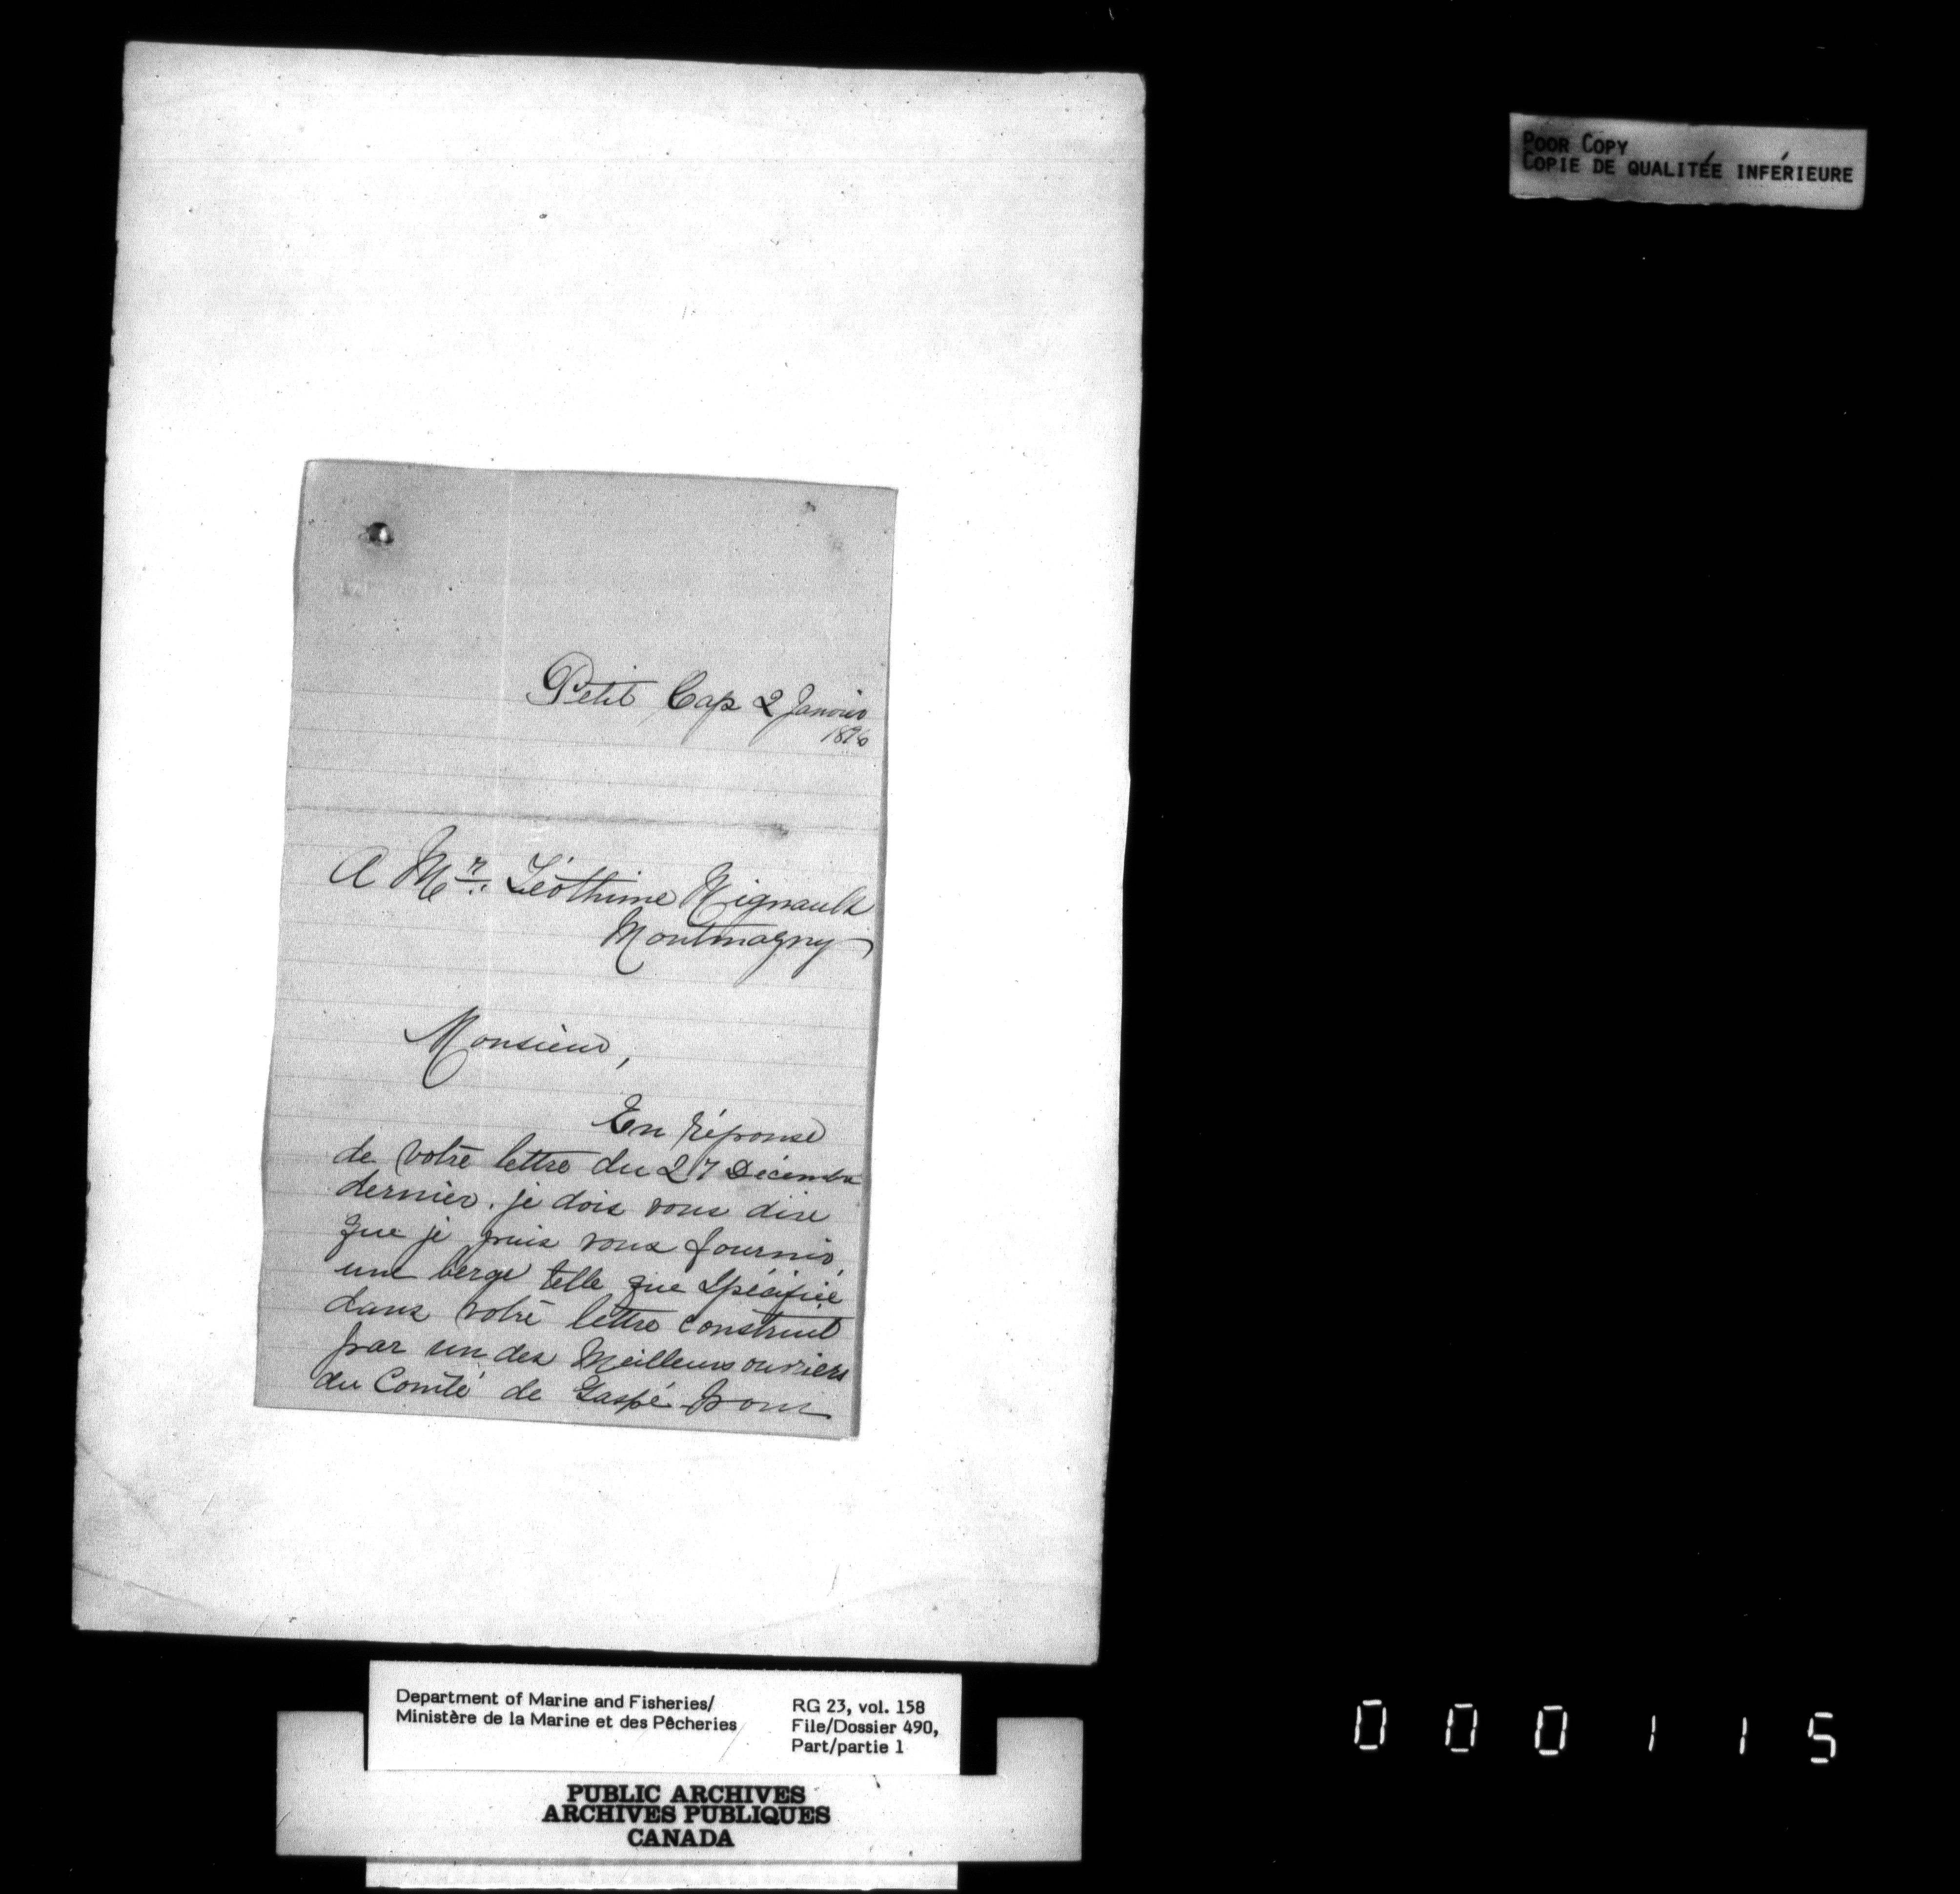 POOR COPY
COPIE DE QUALITÉE INFÉRIEURE
Petit Cap 2 Janvier
1896
A Mr. Léothime Mignault
Montmagny
Monsieur,
En réponse
de votre lettre du 27 Décembre
dernier. je dois vous dire
que je puis vous fournir
une berge telle que spécifiée
dans votre lettre construit
par un des Meilleurs ouvriers
du Comté de Gaspé pour
Department of Marine and Fisheries/
Ministère de la Marine et des Pêcheries
RG 23, vol. 158
File/Dossier 490,
Part/partie 1
PUBLIC ARCHIVES
ARCHIVES PUBLIQUES
CANADA
000115